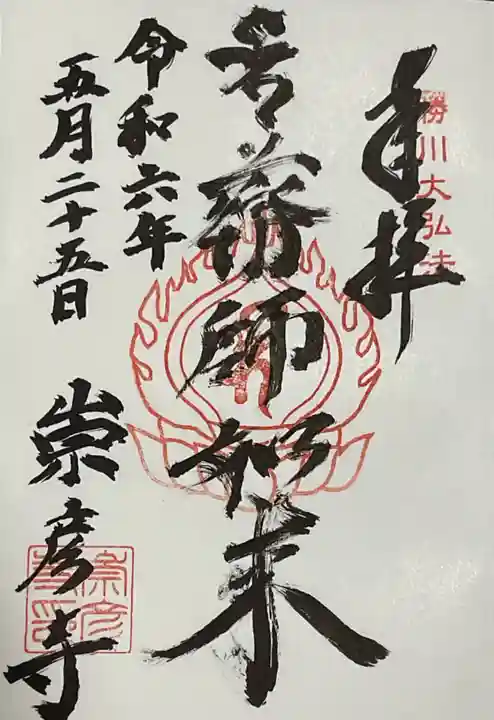 奉拝
勝川大弘法
薬師如来
令和六年
五月二十五日
崇彦寺
崇彦
寺印